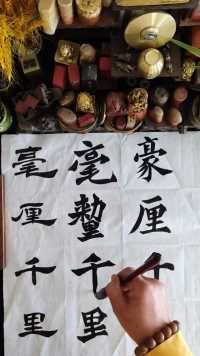 豪厘
毫釐千里
毫厘千里